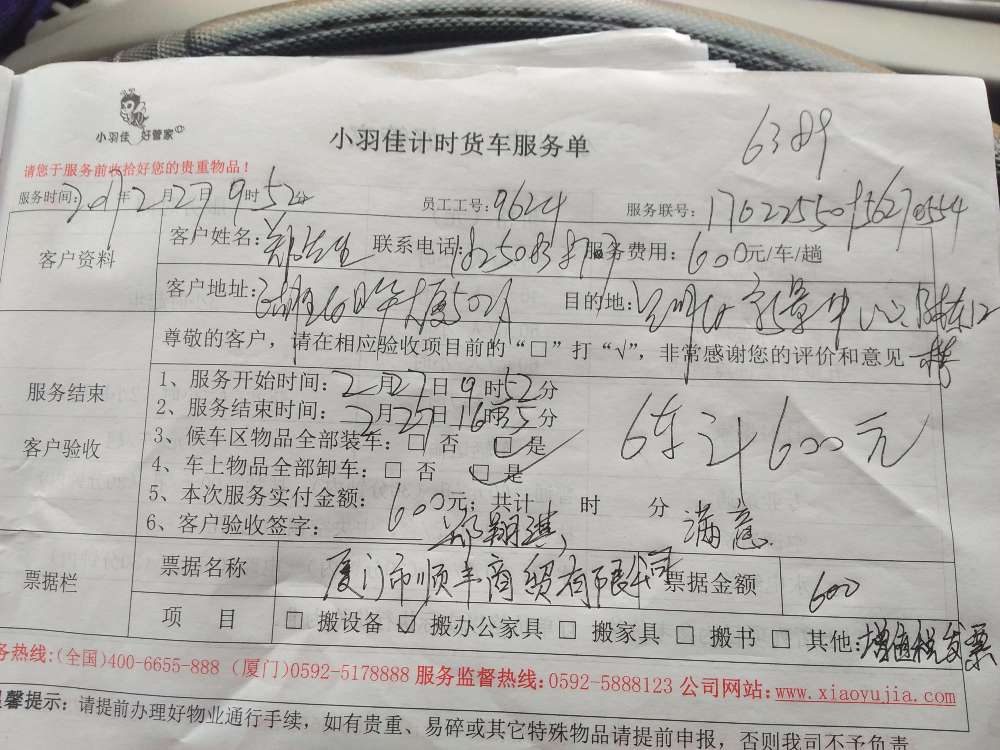 6389
小羽佳 好管家
小羽佳计时货车服务单
请您于服务前收拾好您的贵重物品！
服务时间: 年2月27日9时52分 员工工号:9624 服务联号:
客户资料
客户姓名: 联系电话: 服务费用:600元/车/趟
客户地址: 目的地:
尊敬的客户，请在相应验收项目前的“□”打“√”，非常感谢您的评价和意见
服务结束
客户验收
1、服务开始时间：2月27日9时52分
2、服务结束时间：2月27日16时35分
3、候车区物品全部装车：□ 否 □ 是
4、车上物品全部卸车：□ 否 □ 是
6车计600元
5、本次服务实付金额：600元；共计 时 分
6、客户验收签字： 满意
票据栏
票据名称 厦门市顺丰商贸有限公司 票据金额 600
项 目 □ 搬设备 ☑ 搬办公家具 □ 搬家具 □ 搬书 □ 其他:增值税发票
务热线:(全国)400-6655-888 (厦门)0592-5178888 服务监督热线:0592-5888123 公司网站:www.xiaoyujia.com
温馨提示：请提前办理好物业通行手续，如有贵重、易碎或其它特殊物品请提前申报，否则我司不予负责